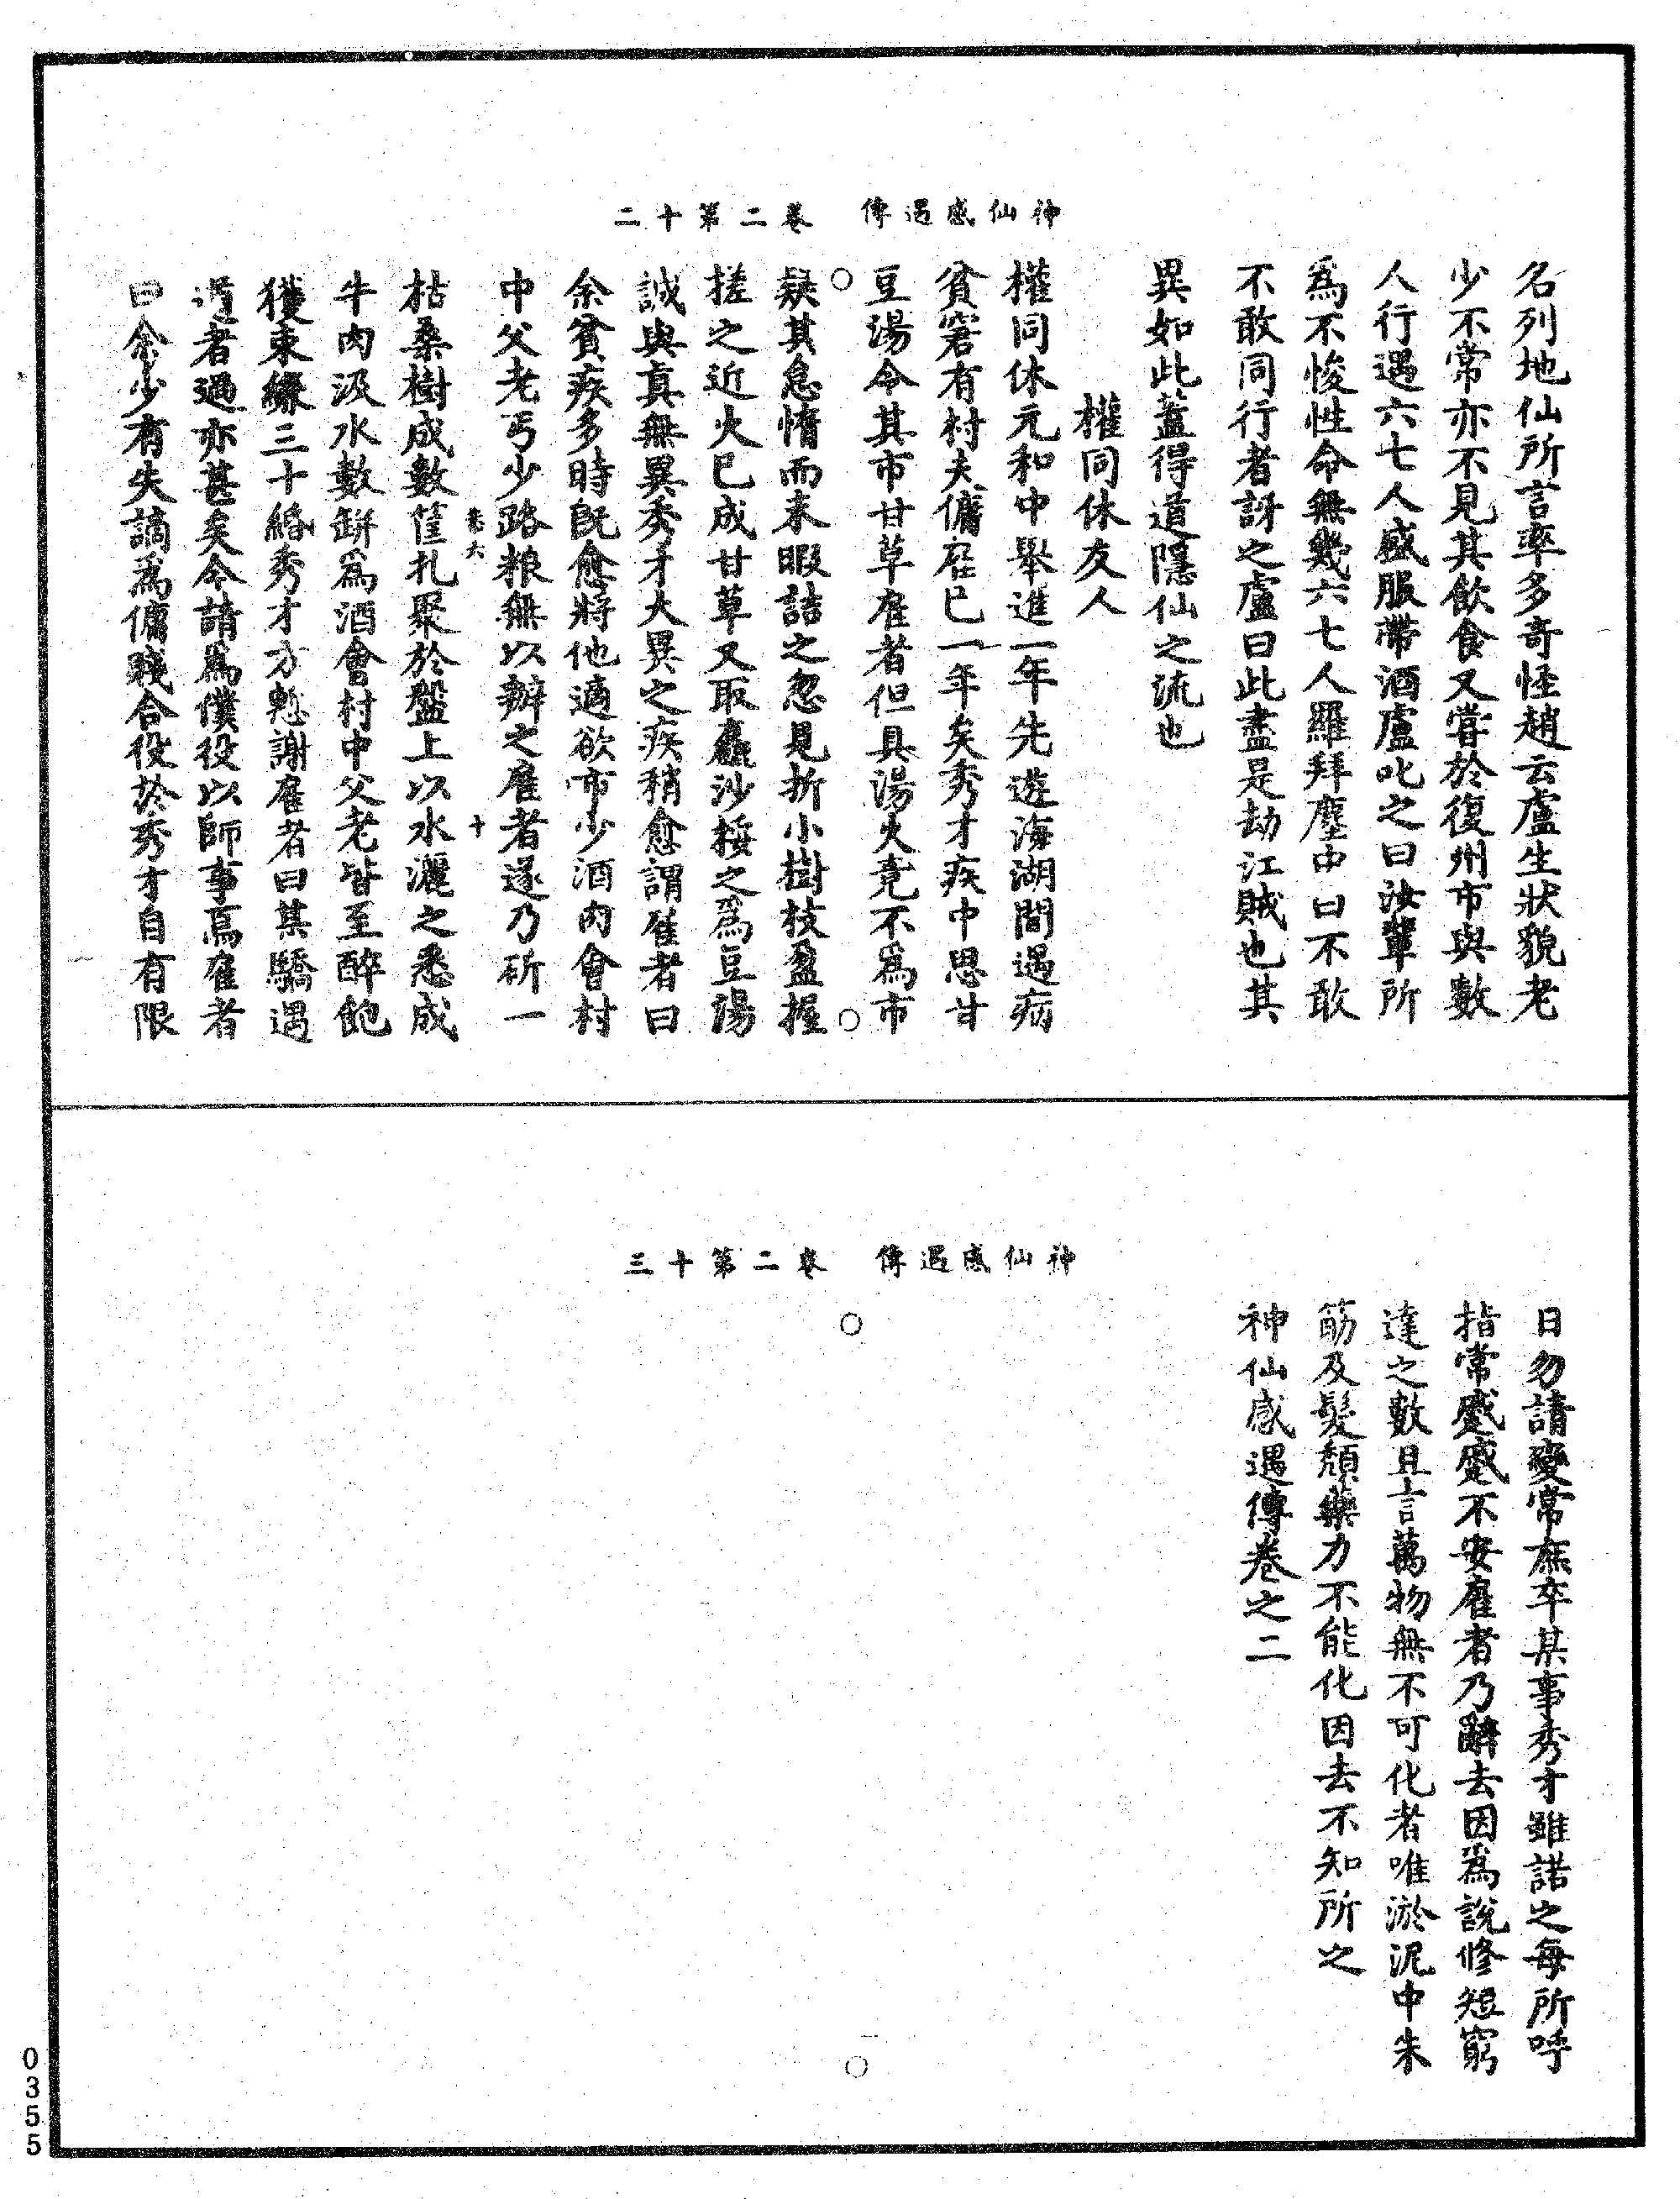 神仙感遇傳　卷二第十二
名列地仙所言率多奇怪趙云盧生狀貌老
少不常亦不見其飲食又嘗於復州市與數
人行遇六七人盛服帶酒盧叱之曰汝輩所
爲不悛性命無幾六七人羅拜塵中曰不敢
不敢同行者訝之盧曰此盡是劫江賊也其
異如此蓋得道隱仙之流也
權同休友人
權同休元和中舉進一年先遊海湖間遇病
貧窘有村夫傭雇已一年矣秀才疾中思甘
豆湯令其市甘草雇者但具湯火竟不爲市
疑其怠惰而未暇詰之忽見折小樹枝盈握
搓之近火已成甘草又取麤沙挼之爲豆湯
誠與真無異秀才大異之疾稍愈謂雇者曰
余貧疾多時既愈將他適欲市少酒肉會村
中父老丐少路粮無以辦之雇者遂乃斫一
十
枯桑樹成數筐扎聚於盤上以水灑之悉成
牛肉汲水數缾爲酒會村中父老皆至醉飽
獲束縑三十緡秀才方慙謝雇者曰某驕遇
道者過亦甚矣今請爲僕役以師事焉雇者
曰余少有失謫爲傭賤合役於秀才自有限
神仙感遇傳　卷二第十三
日勿請變常庶卒某事秀才雖諾之每所呼
指常蹙蹙不安雇者乃辭去因爲說修短窮
達之數且言萬物無不可化者唯淤泥中朱
筋及髮頹藥力不能化因去不知所之
神仙感遇傳卷之二
0355